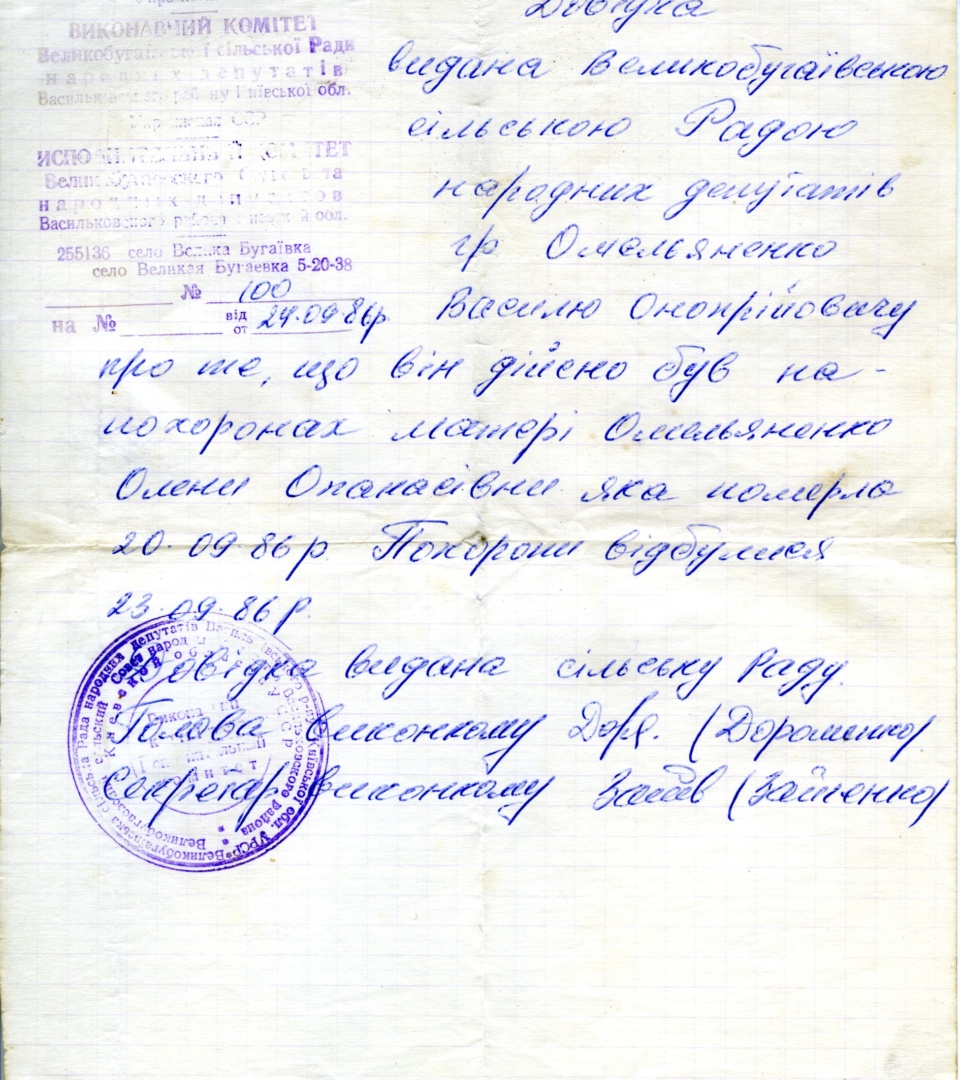 Довідка
ВИКОНАВЧИЙ КОМІТЕТ
Великобугаївської сільської Ради
народних депутатів
Васильківського району Київської обл.
ИСПОЛНИТЕЛЬНЫЙ КОМИТЕТ
народных депутатов
Васильковского района Киевской обл.
255136 село Велика Бугаївка
село Великая Бугаевка 5-20-38
№ 100
на № від от 24.09.86р.
видана Великобугаївською
сільською Радою
народних депутатів
гр Омельяненко
Василю Онопрійовичу
про те, що він дійсно був на-
похоронах матері Омельяненко
Олени Опанасівни яка померла
20.09.86 р. Похорони відбулися
23.09.86 р.
Довідка видана сільську Раду.
Голова виконкому (Дороменко)
Секретар виконкому